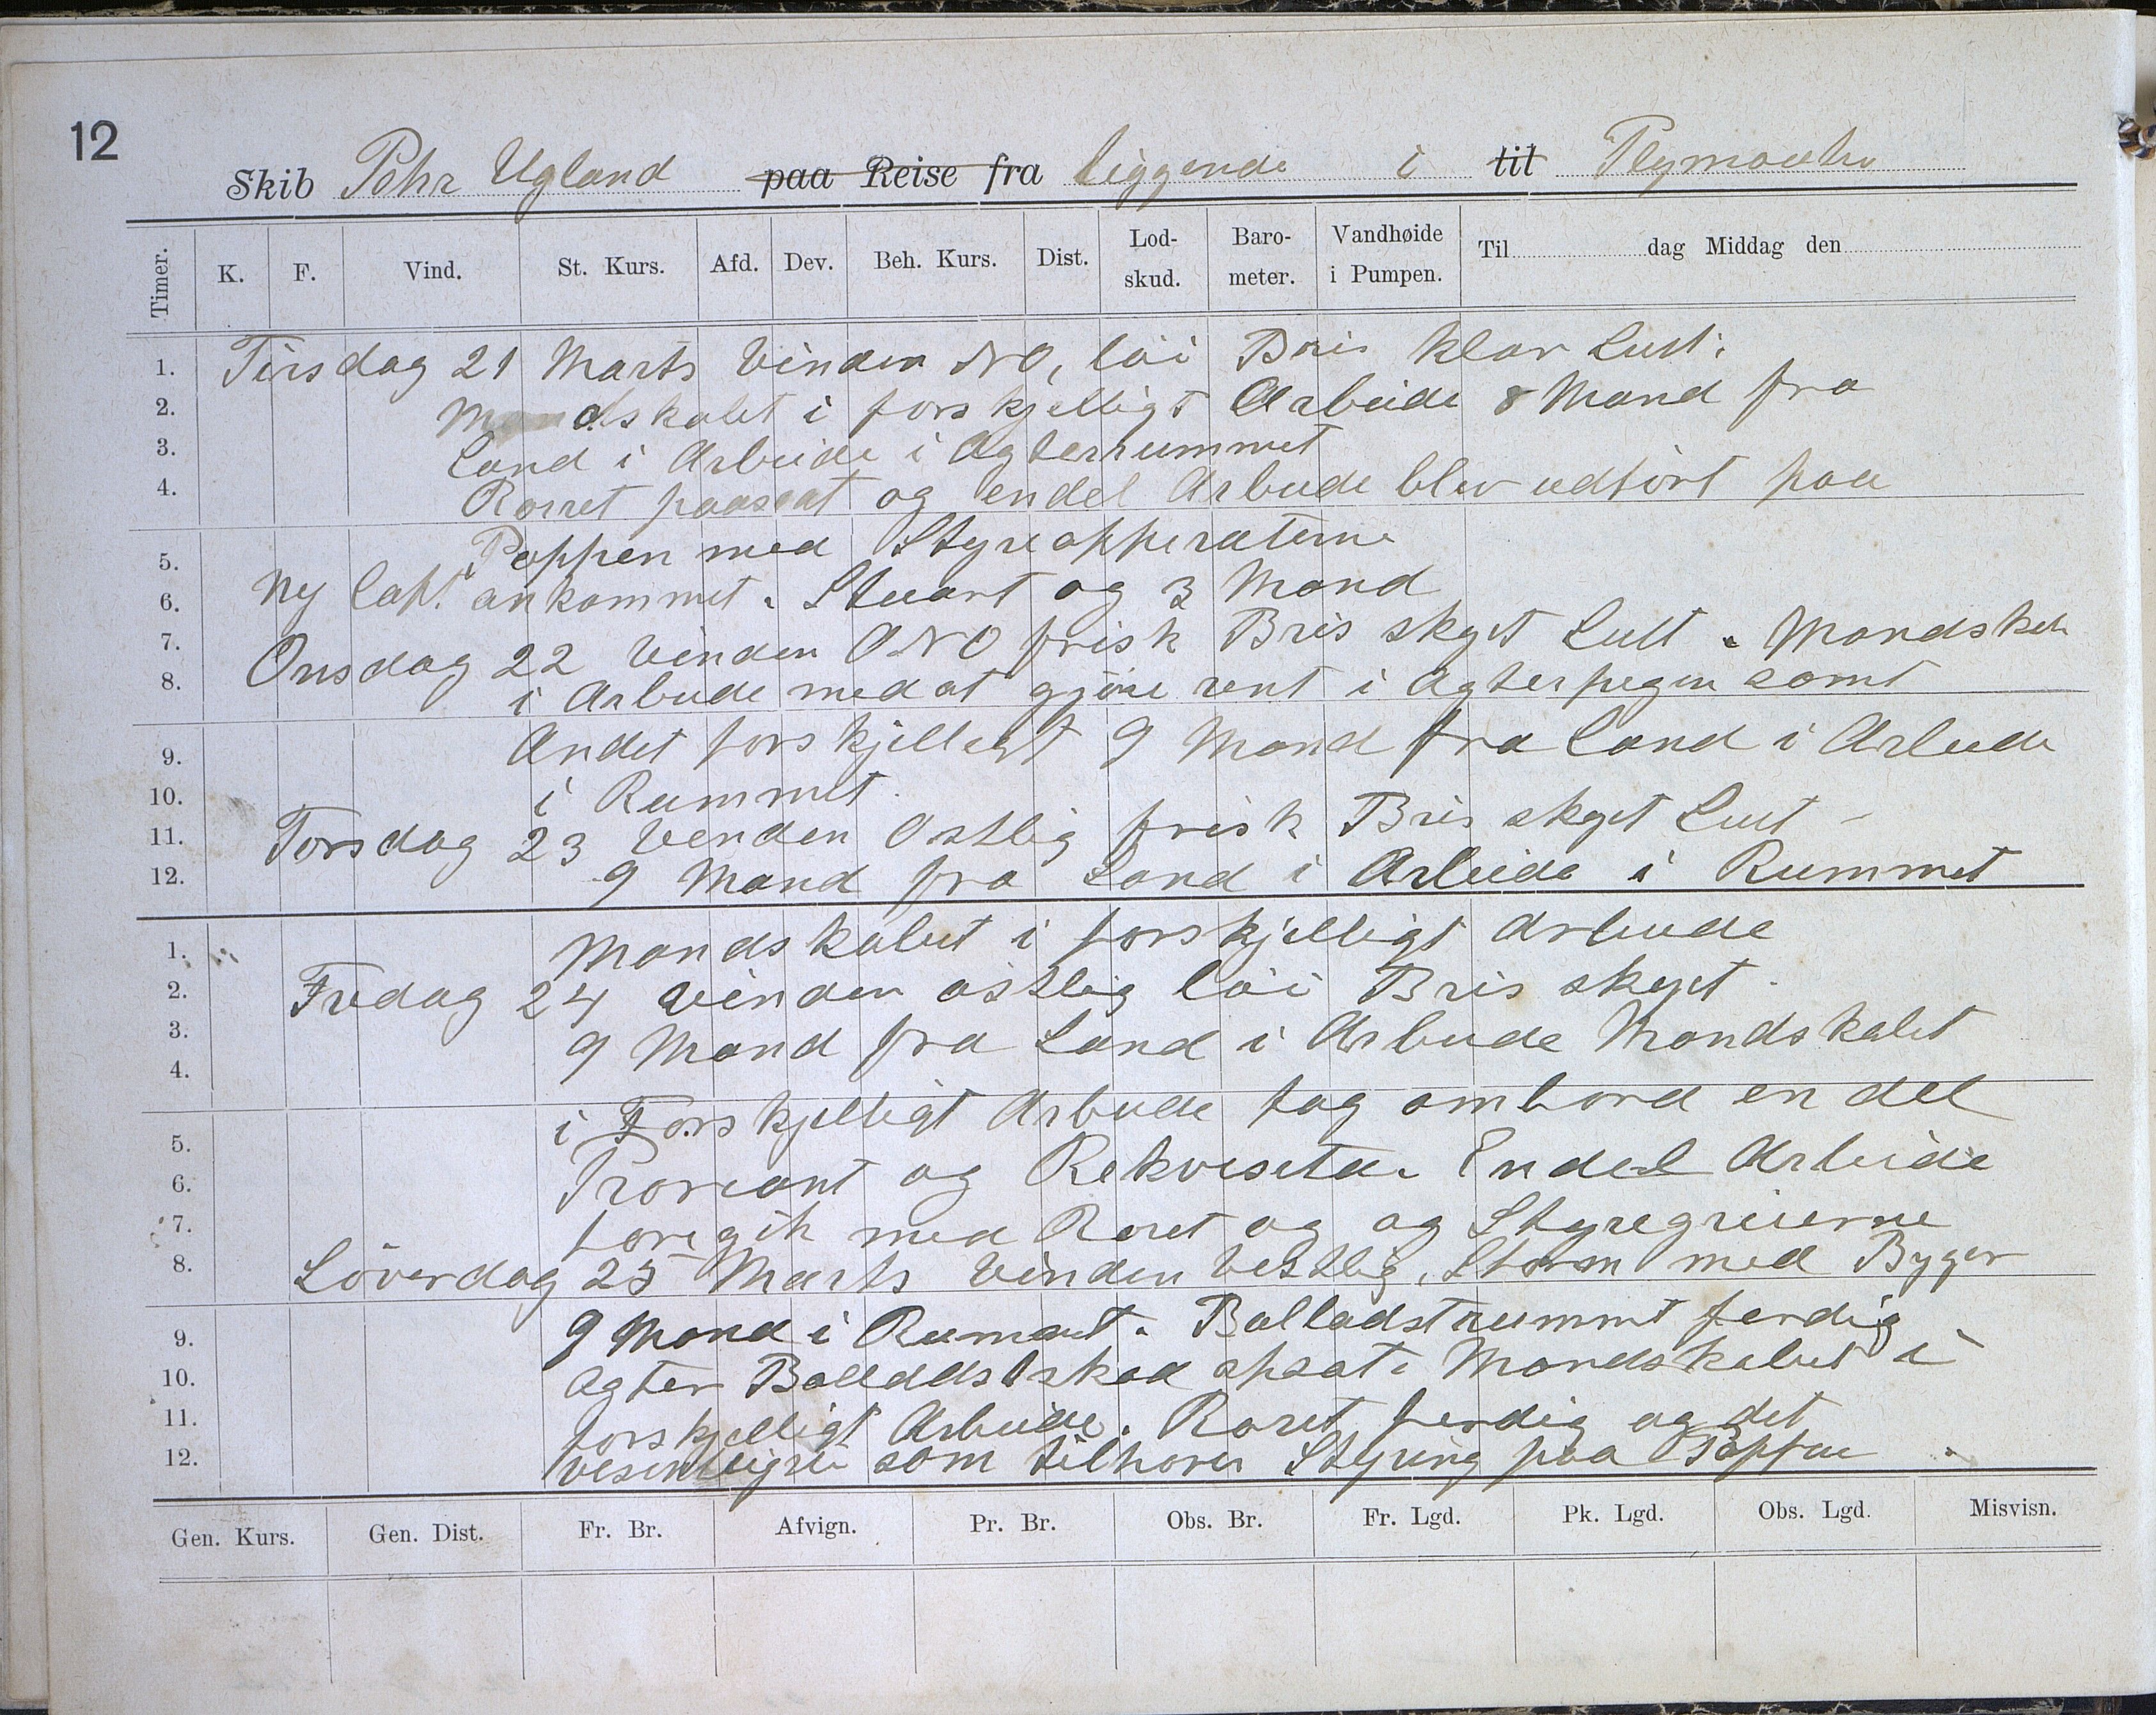 12
Skib Pehr Ugland paa Reise fra liggende i til Plymouth
Timer. K. F. Vind. St. Kurs. Afd. Dev. Beh. Kurs. Dist. Lod-skud. Baro-meter. Vandhøide i Pumpen. Til dag Middag den
1. Tirsdag 21 Marts Vinden NO, löi Bris klar Luft.
2. Mandskabet i forskjelligt Arbeide 8 Mand fra
3. Land i Arbeide i Agterrummet
4. Rorret paasat og endel Arbeide blev udfört paa
5. Poppen med Styreapperaterne
6. Ny Capt. ankommet. Stuart og 3 Mand
7. Onsdag 22 Vinden ONO frisk Bris skyet Luft. Mandskab
8. i Arbeide med at gjöre rent i Agterpegen samt
9. Andet forskjelligt 9 Mand fra Land i Arbeide
10. i Rummet.
11. Torsdag 23 Vinden Ostlig frisk Bris skyet Luft -
12. 9 Mand fra Land i Arbeide i Rummet
1. Mandskabet i forskjelligt Arbeide
2. Fredag 24 Vinden östlig löi Bris skyet.
3. 9 Mand fra Land i Arbeide Mandskabet
4.
i Forskjelligt Arbeide tog ombord en del
5.
6. Proviant og Rekvisita. Endel Arbeide
7. foregik med Roret og og Styregreierne
8. Löverdag 25 Marts Vinden Vestlig, Storm med Byger
9. 9 Mand i Rummet. Balladstrummet ferdig
10. agter Balladstskod opsat. Mandskabet i
11. forskjelligt Arbeide. Roret ferdig og det
12. vesentligste som tilhorer Styring paa Poppen.
Gen. Kurs. Gen. Dist. Fr. Br. Afvign. Pr. Br. Obs. Br. Fr. Lgd. Pk. Lgd. Obs. Lgd. Misvisn.